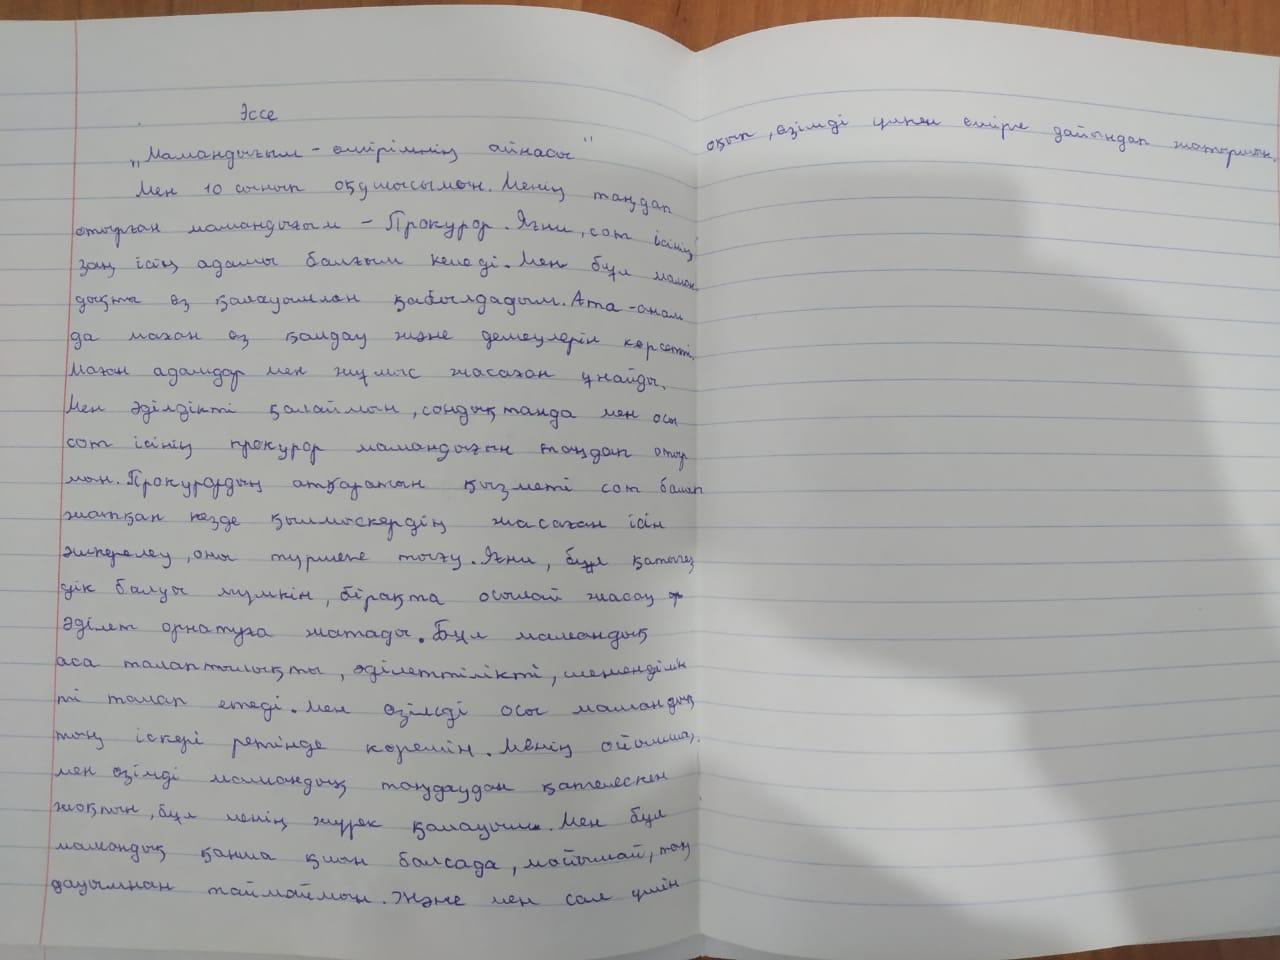 Эссе
„Мамандығым - өмірімнің айнасы"
Мен 10 сынып оқушысымын. Менің таңдап
отырған мамандығым - Прокурор. Яғни, сот ісінің
заң ісің адамы балғым келеді. Мен бұл маман
дықты өз қалауыммен қабылдадым. Ата-анам
да маған өз қолдау және демеулерін көрсетті.
Маған адамдар мен жұмыс жасаған ұнайды.
Мен әділдікті қалаймын, сондықтанда мен осы
сот ісінің прокурор мамандығын таңдап отыр
мын. Прокурордың атқаратын қызметі сот балып
жатқан кезде қылмыскердің жасаған ісін
әшкерелеу, оны түрмеге тоғу. Яғни, бұл қатыгез
дік балуы мүмкін, бірақта осылай жасау
әділет орнатуға жатады. Бұл мамандық
аса талаптылықты, әділеттілікті, шешенділік
ті талап етеді. Мен өзімді осы мамандық
тың іскері ретінде көремін. Менің ойымша,
мен өзімді мамандық таңдаудан қателескен
жоқпын, бұл менің жүрек қалауым. Мен бұл
мамандық қанша қиын балсада, мойымай, таң
дауымнан таймаймын. Және мен сол үшін
оқып, өзімді үлкен өмірге дайындап жатырмын.